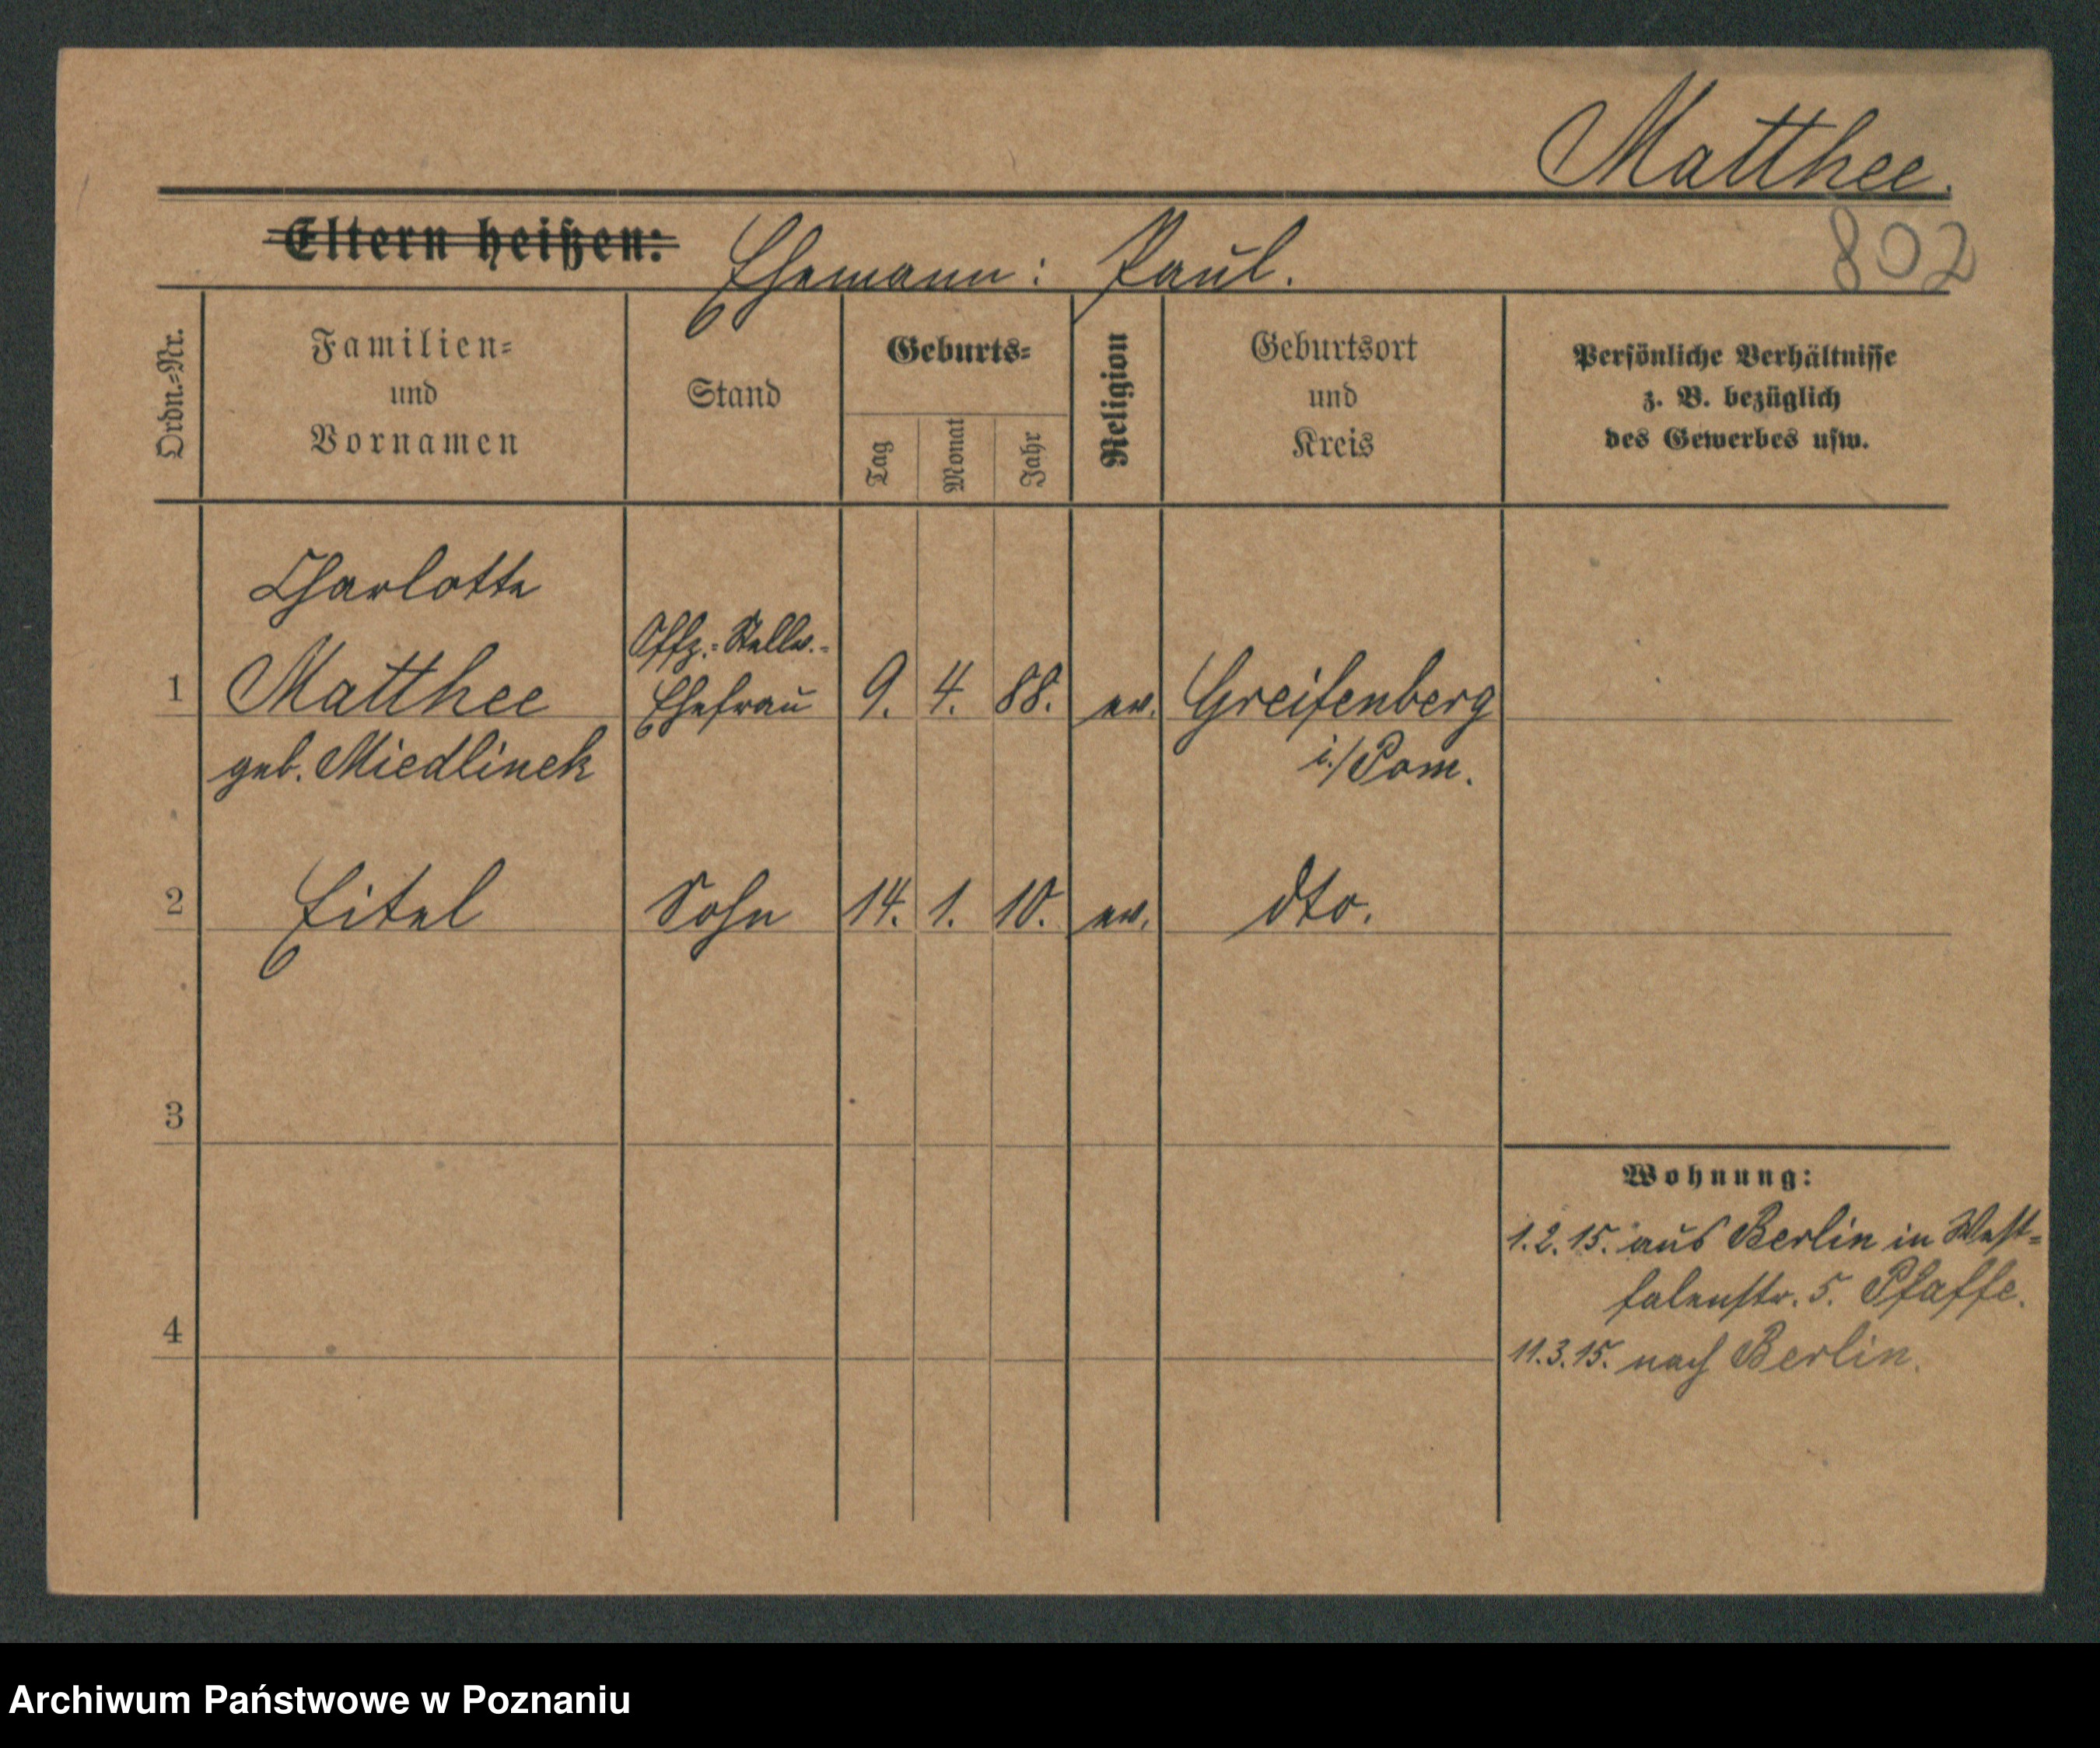 Matthee.
Eltern heißen: Ehemann: Paul.
802
Ordn.-Nr.
Familien-
und
Vornamen
Stand
Geburts-
Tag
Monat
Jahr
Religion
Geburtsort
und
Kreis
Persönliche Verhältnisse
z. B. bezüglich
des Gewerbes usw.
Charlotte
Offz.-Stellv.-
1 Matthee Ehefrau 9. 4. 88. ev. Greifenberg
geb. Miedlinek i./Pom.
2 Eitel Sohn 14. 1. 10. ev. dto.
3
Wohnung:
1.2.15. aus Berlin in West-
falenstr. 5. Pfaffe.
4
11.3.15. nach Berlin.
Archiwum Państwowe w Poznaniu